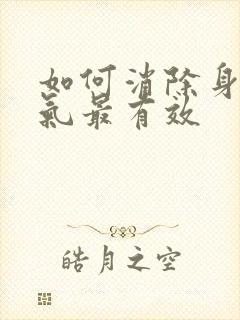 如何消除身
氣最有效
皓月之空